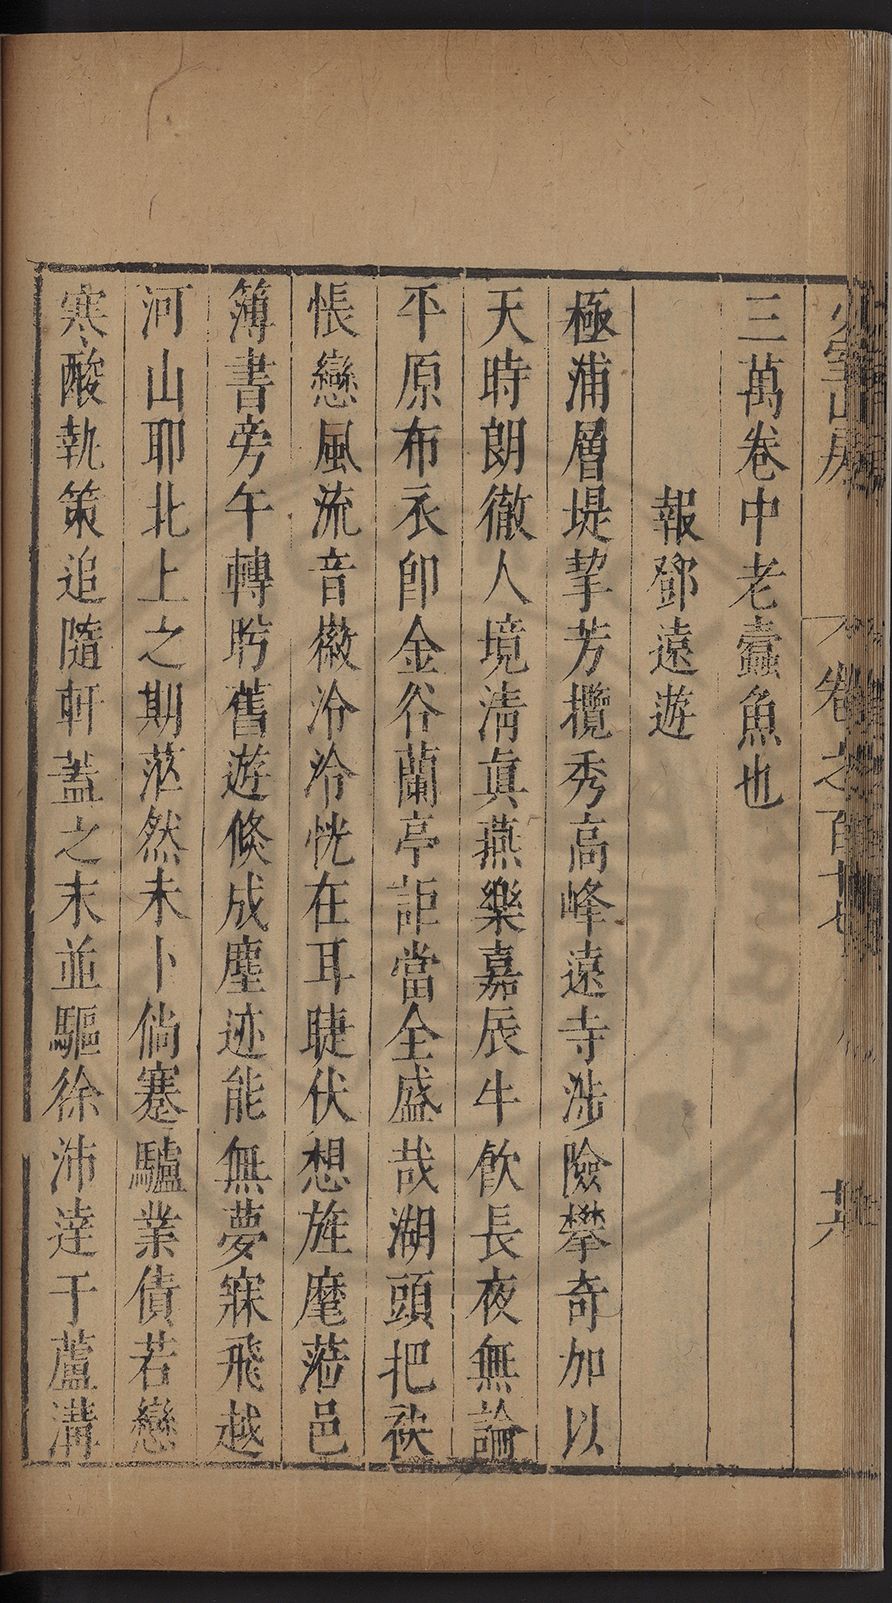 少室山房
卷之百十七
共
三萬卷中老蠹魚也
報鄧遠遊
極浦層堤挈芳攬秀高峰遠寺涉險攀奇加以
天時朗徹人境清眞燕樂嘉辰牛飲長夜無論
平原布衣卽金谷蘭亭詎當全盛哉湖頭把袂
悵戀風流音徽泠泠恍在耳睫伏想旌麾蒞邑
簿書旁午轉盻舊遊倏成塵迹能無夢寐飛越
河山耶北上之期茫然未卜倘蹇驢業債若戀
寒酸執策追隨軒蓋之末並驅徐沛達于蘆溝